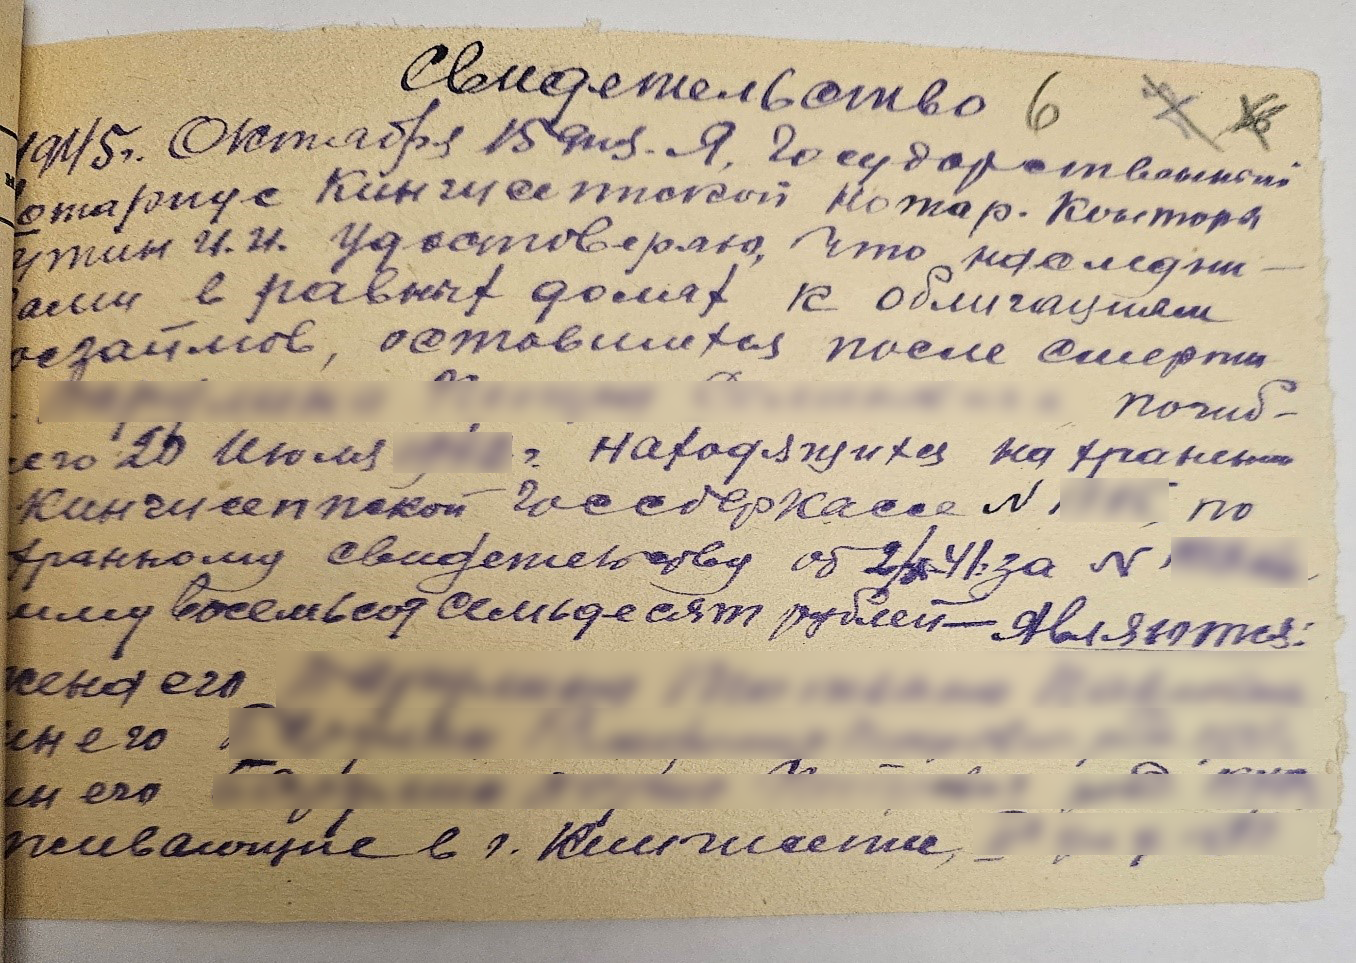 Свидетельство 6
1945г. Октября 15 дня. Я, Государственный
отариус Кингисеппской Нотар. Конторы
утин И.И. удостоверяю, что наследни-
ами в равных долях к облигациям
осзаймов, оставшихся после смерти
погиб-
его 20 Июля г. находящихся на хранении
Кингисеппской Госсберкассе N по
хранному свидетельству от за N
умму восемьсот семьдесят рублей — являются:
жена его
ын его
ын его
живающие в г. Кингисеппе,